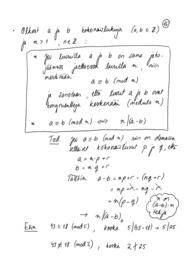 ④
• Olkoot a ja b kokonaislukuja (a,b ∈ ℤ)
ja n > 1, n ∈ ℤ :
* Jos luvuilla a ja b on sama jako-
jäännös jaettaessa luvulla n, niin
merkitään
a ≡ b (mod n)
ja sanotaan, että luvut a ja b ovat
kongruentteja keskenään (modulo n)
* a ≡ b (mod n) ⇔ n | (a-b)
Tod. Jos a ≡ b (mod n) niin on olemassa
sellaiset kokonaisluvut p ja q, että
a = n·p + r
b = n·q + r
Tällöin a-b = np+r - (nq+r)
= np + r - nq - r
= n(p-q)
→ n | (a-b)
n on
(a-b):n
tekijä
Esim 43 ≡ 18 (mod 5), koska 5 | (43-18) = 5 | 25
43 ≢ 18 (mod 2), koska 2 ∤ 25